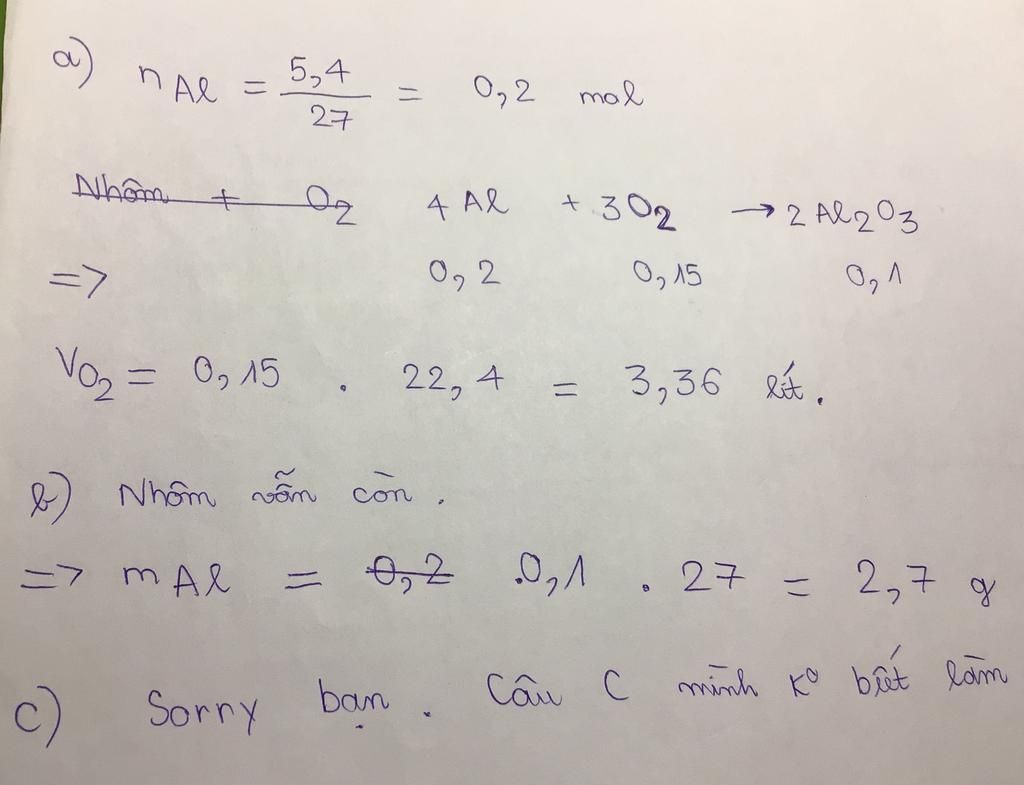 a) nAl = 5,4/27 = 0,2 mol
Nhôm + O2 4Al + 3O2 → 2Al2O3
=> 0,2 0,15 0,1
VO2 = 0,15 . 22,4 = 3,36 lít.
b) Nhôm vẫn còn.
=> mAl = 0,2 .0,1 . 27 = 2,7 g
c) Sorry bạn. Câu C mình ko biết làm